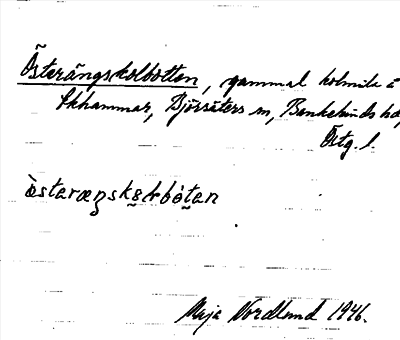 Österängskolbotten, gammal kolmila å
Skhammar, Björsäters sn, Bankekinds hd,
Östg. l.
Maja Nordlund 1946.